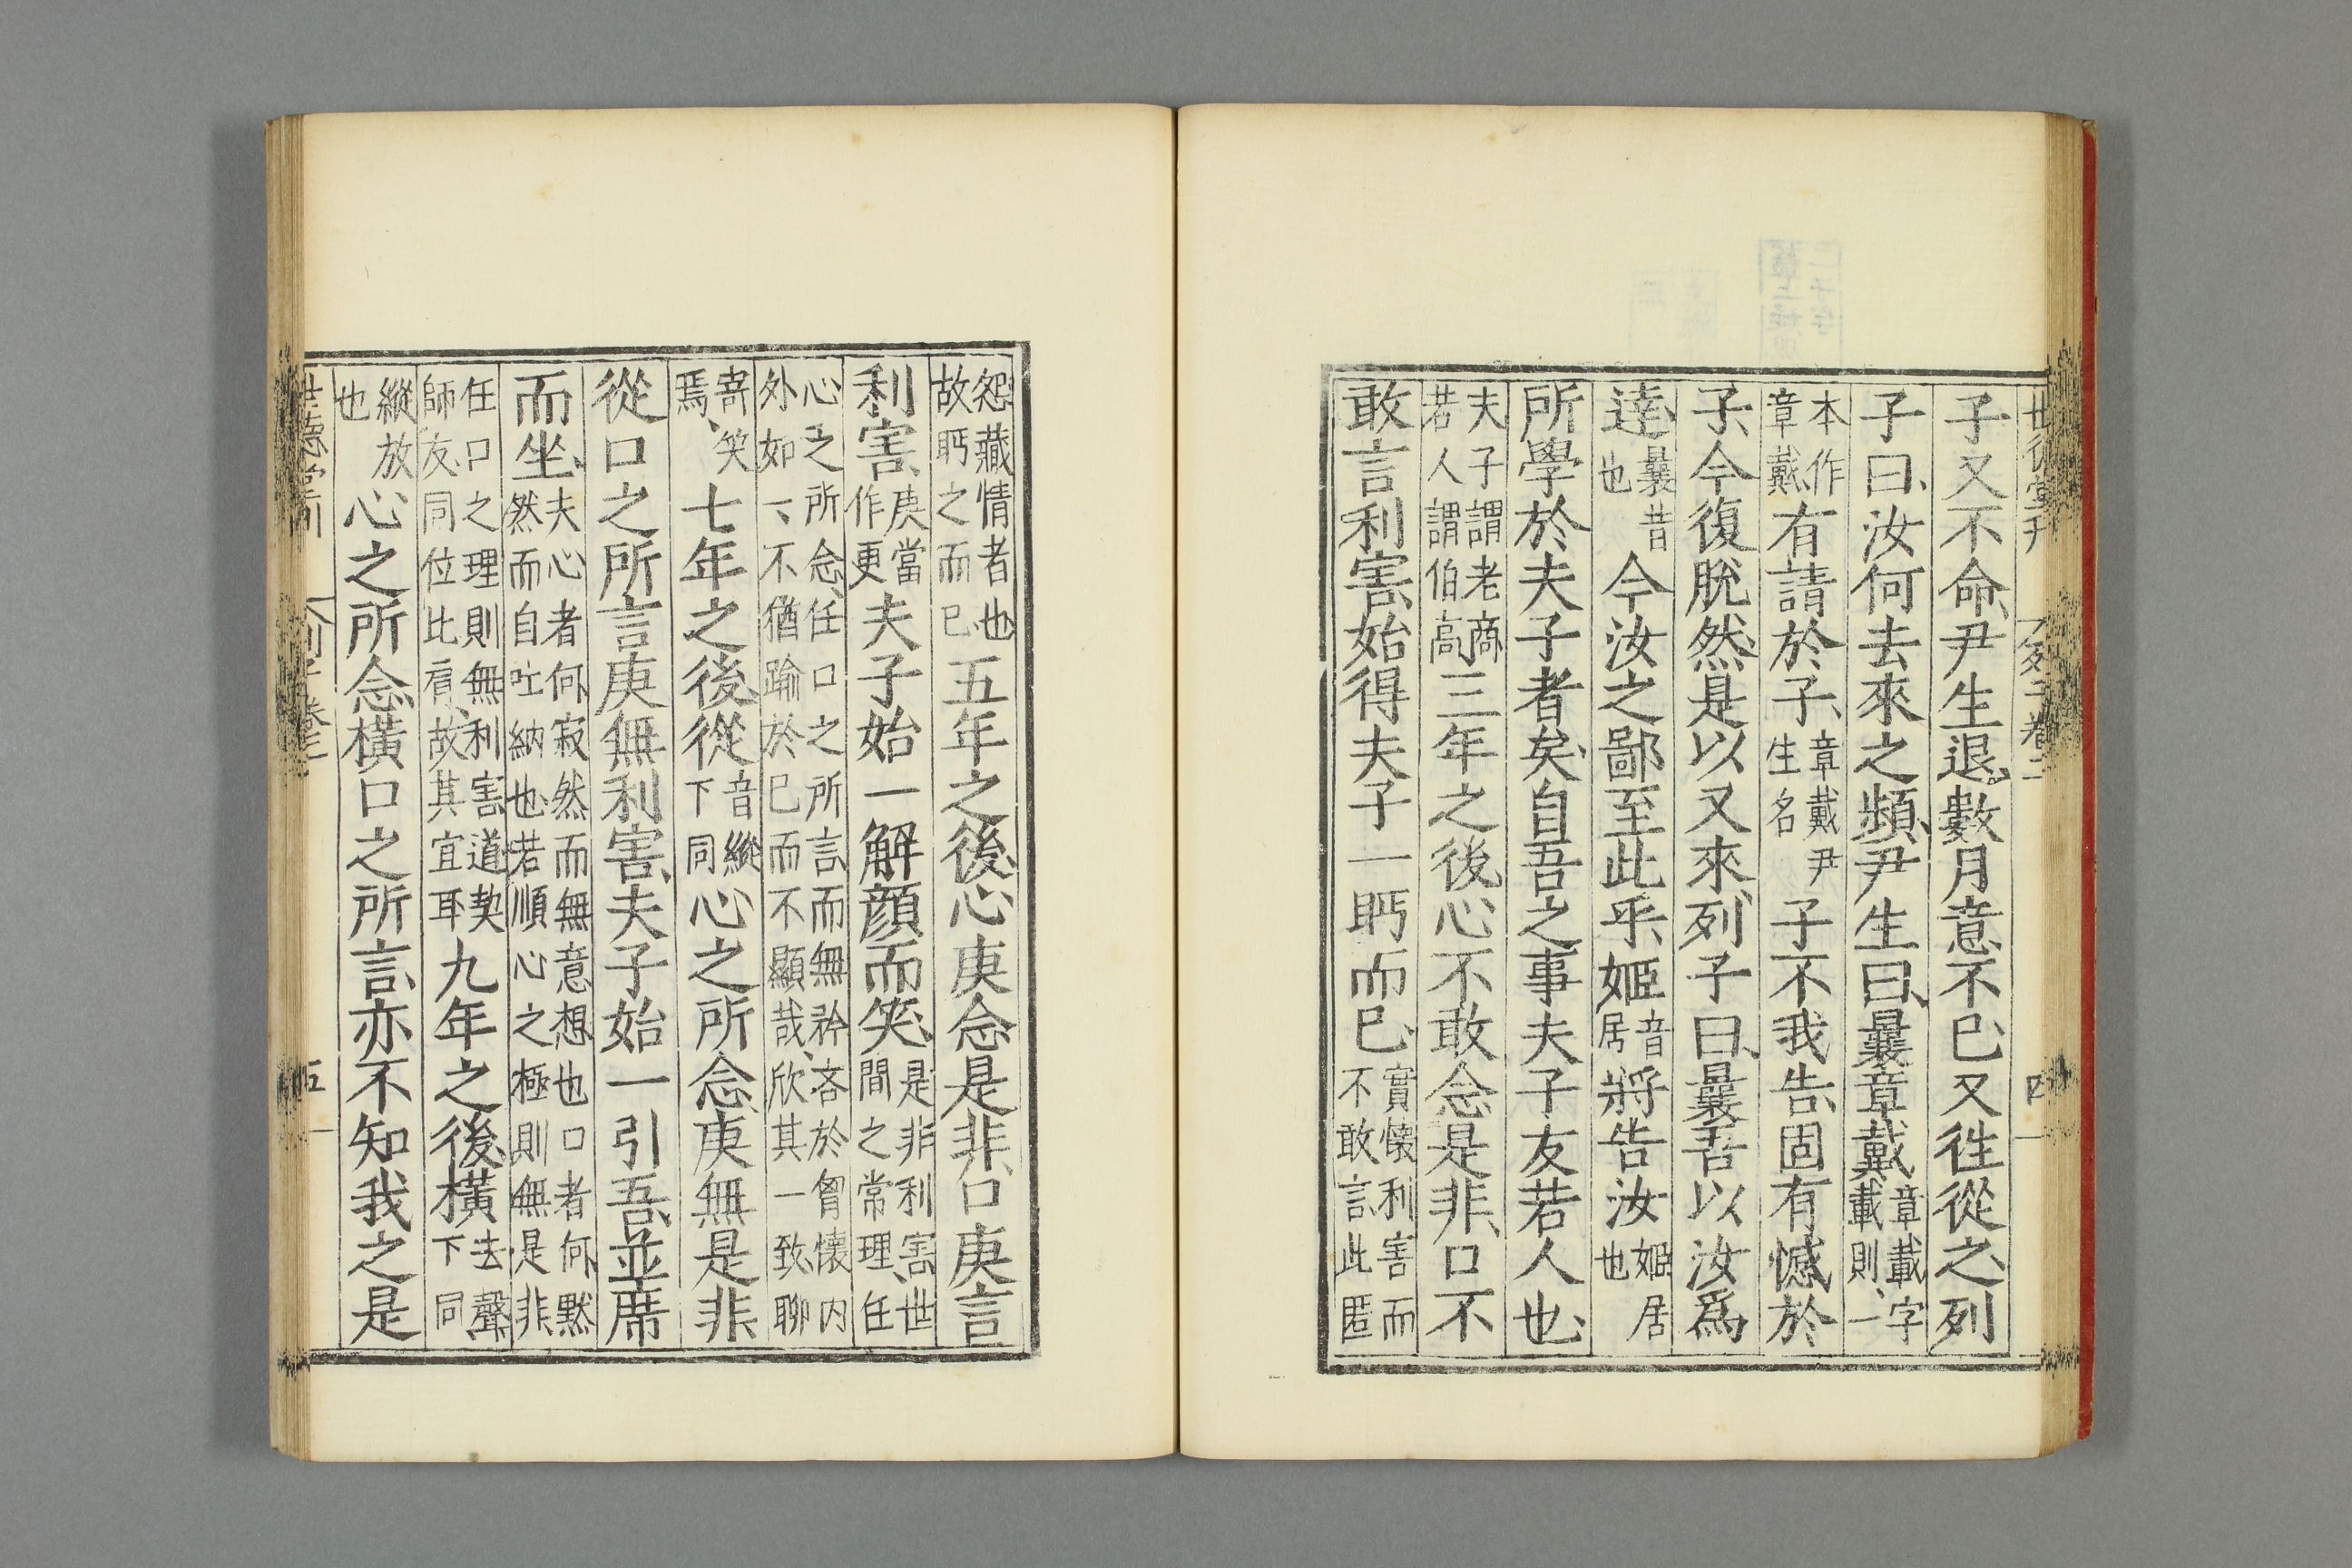 世德堂刊 列子卷二 四
子又不命尹生退數月意不已又徃從之列
子曰汝何去來之頻尹生曰曩章戴章載字載則一
本作章戴有請於子章戴尹生名子不我告固有憾於
子今復脫然是以又來列子曰曩吾以汝爲
達曩昔也今汝之鄙至此乎姬音居將告汝姬居也
所學於夫子者矣自吾之事夫子友若人也
夫子謂老商若人謂伯高三年之後心不敢念是非口不
敢言利害始得夫子一眄而已實懷利害而不敢言此匿
怨藏情者也故眄之而已五年之後心庚念是非口庚言
利害庚當作更夫子始一解顏而笑是非利害世間之常理任
心之所念任口之所言而無矜吝於胷懷内外如一不猶踰於已而不顯哉欣其一致聊
寄笑焉七年之後從音縱下同心之所念庚無是非
從口之所言庚無利害夫子始一引吾並席
而坐夫心者何寂然而無意想也口者何默然而自吐納也若順心之極則無是非
任口之理則無利害道契師友同位比肩故其宜耳九年之後橫去聲下同
縱放也心之所念橫口之所言亦不知我之是
世德堂刊 列子卷二 五